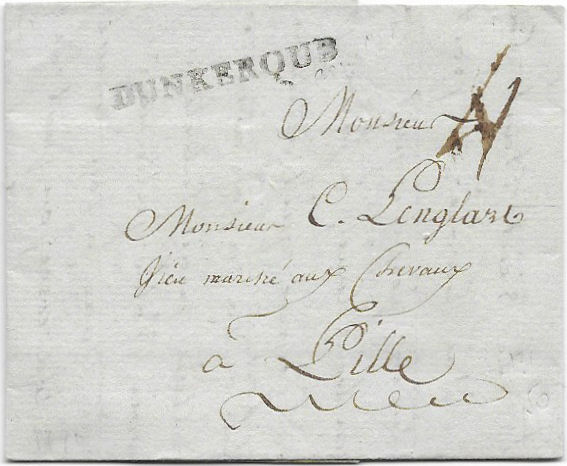 DUNKERQUE
Monsieur
Monsieur C. Lenglart
Viéu marché aux Chevaux
à Lille